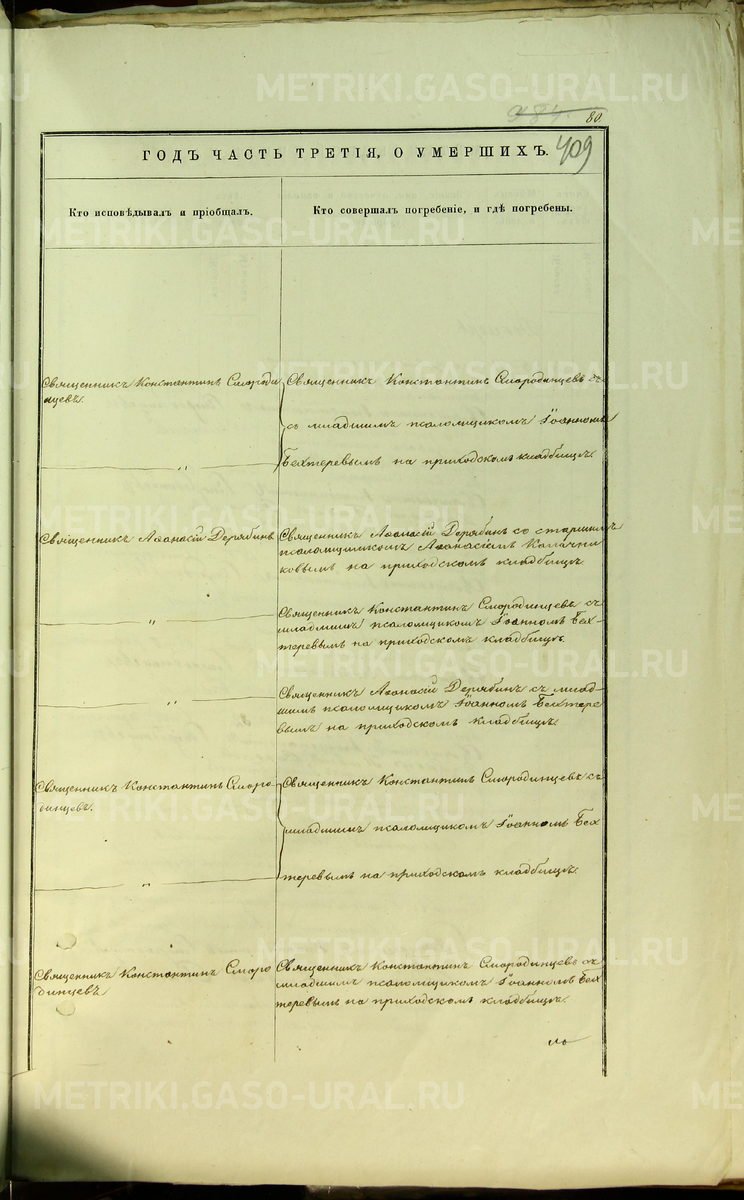 METRIKI.GASO-URAL.RU
384.
80.
409
ГОДЪ ЧАСТЬ ТРЕТІЯ, О УМЕРШИХЪ.
Кто исповѣдывалъ и пріобщалъ.
Кто совершалъ погребеніе, и гдѣ погребены.
Священникъ Константинъ Смороди
нцевъ.
Священникъ Константинъ Смородинцевъ
съ младшимъ псаломщикомъ Іоанномъ
Бехтеревымъ на приходскомъ кладбищѣ.
"
Священникъ Аѳанасій Дерябинъ
Священникъ Аѳанасій Дерябинъ со старшимъ
псаломщикомъ Аѳанасіемъ Калачни
ковымъ на приходскомъ кладбищѣ
"
Священникъ Константинъ Смородинцевъ съ
младшимъ псаломщикомъ Іоанномъ Бех-
теревымъ на приходскомъ кладбищѣ.
"
Священникъ Аѳанасій Дерябинъ съ млад-
шимъ псаломщикомъ Іоанномъ Бехтере
вымъ на приходскомъ кладбищѣ.
Священникъ Константинъ Сморо
динцевъ.
Священникъ Константинъ Смородинцевъ съ
младшимъ псаломщикомъ Іоанномъ Бех
теревымъ на приходскомъ кладбищѣ.
"
Священникъ Константинъ Сморо
динцевъ
Священникъ Константинъ Смородинцевъ съ
младшимъ псаломщикомъ Іоанномъ Бех
теревымъ на приходскомъ кладбищѣ.